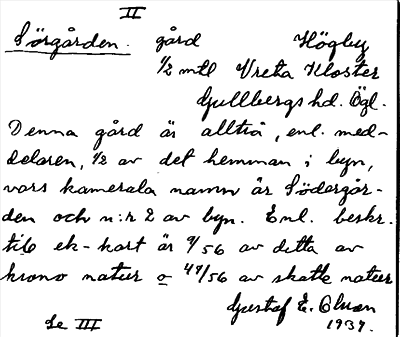 II
Sörgården. gård Högby
1/2 mtl Vreta Kloster
Gullbergs hd. Ögl.
Denna gård är alltså, enl. med-
delaren, 1/2 av det hemman i byn,
vars kamerala namn är Södergår-
den och n:r 2 av byn. Enl. beskr.
till ek-kart är 9/56 av detta av
krono natur o 47/56 av skatte natur
Gustaf E.
1937.
Se III